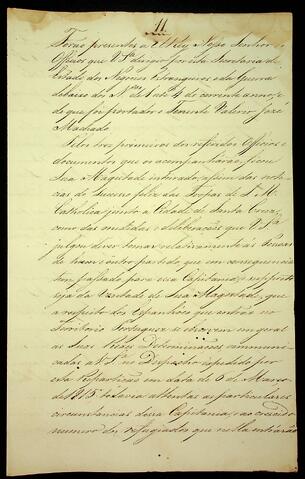 11
Forão presentes a ElRey Nosso Senhor os
Officios que V. S.ª dirigio por esta Secretaria de
Estado dos Negocios Estrangeiros e da Guerra
debaixo dos N.os 1 até 4 do corrente anno, e
de que foi portador o Tenente Valerio José
Machado
Pelos tres primeiros dos referidos Officios e
documentos que os acompanharão, ficou
Sua Magestade inteirado, assim das noti-
cias do successo feliz das Tropas de S. M.
Catholica junto a Cidade de Santa Cruz,
como das medidas e deliberações que V. S.ª
julgou dever tomar relativamente ás Pessoas
de hum e outro partido, que em consequencia
tem passado para essa Capitania; e supposto
seja da Vontade de Sua Magestade, que
a respeito dos Espanhoes que entrão no
Territorio Portuguez se observem em geral
as Suas Reaes Determinações communi-
cadas a V. S.ª no Despacho expedido por
esta Repartição em data de 6 de Março
de 1815; todavia attentas as particulares
circunstancias dessa Capitania, e ao crescido
numero de refugiados que nella entrarão